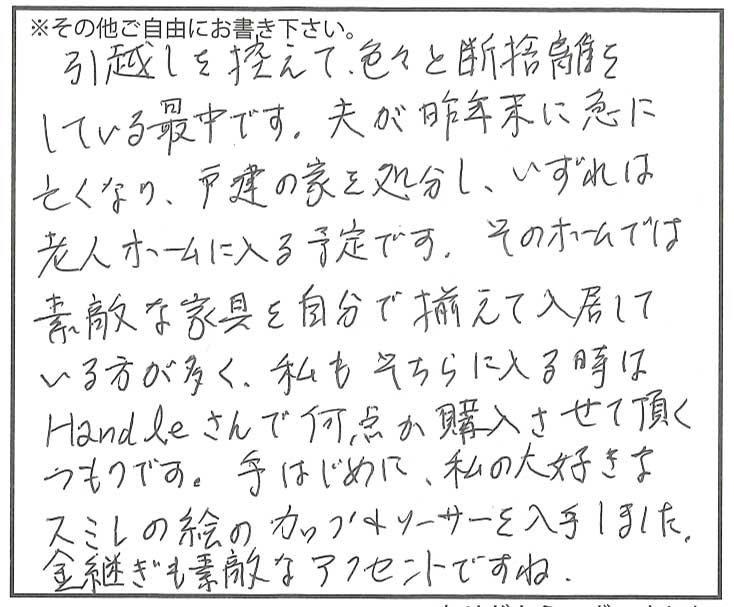 ※その他ご自由にお書き下さい。
引越しを控えて、色々と断捨離を
している最中です。夫が昨年末に急に
亡くなり、戸建の家を処分し、いずれは
老人ホームに入る予定です。そのホームでは
素敵な家具を自分で揃えて入居して
いる方が多く、私もそちらに入る時は
Handleさんで何点か購入させて頂く
つもりです。手はじめに、私の大好きな
スミレの絵のカップ&ソーサーを入手しました。
金継ぎも素敵なアクセントですね。